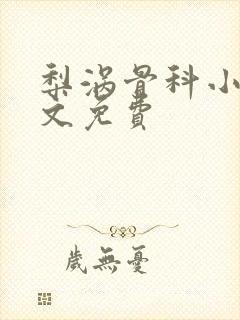 梨涡骨科小
文免費
歲無憂